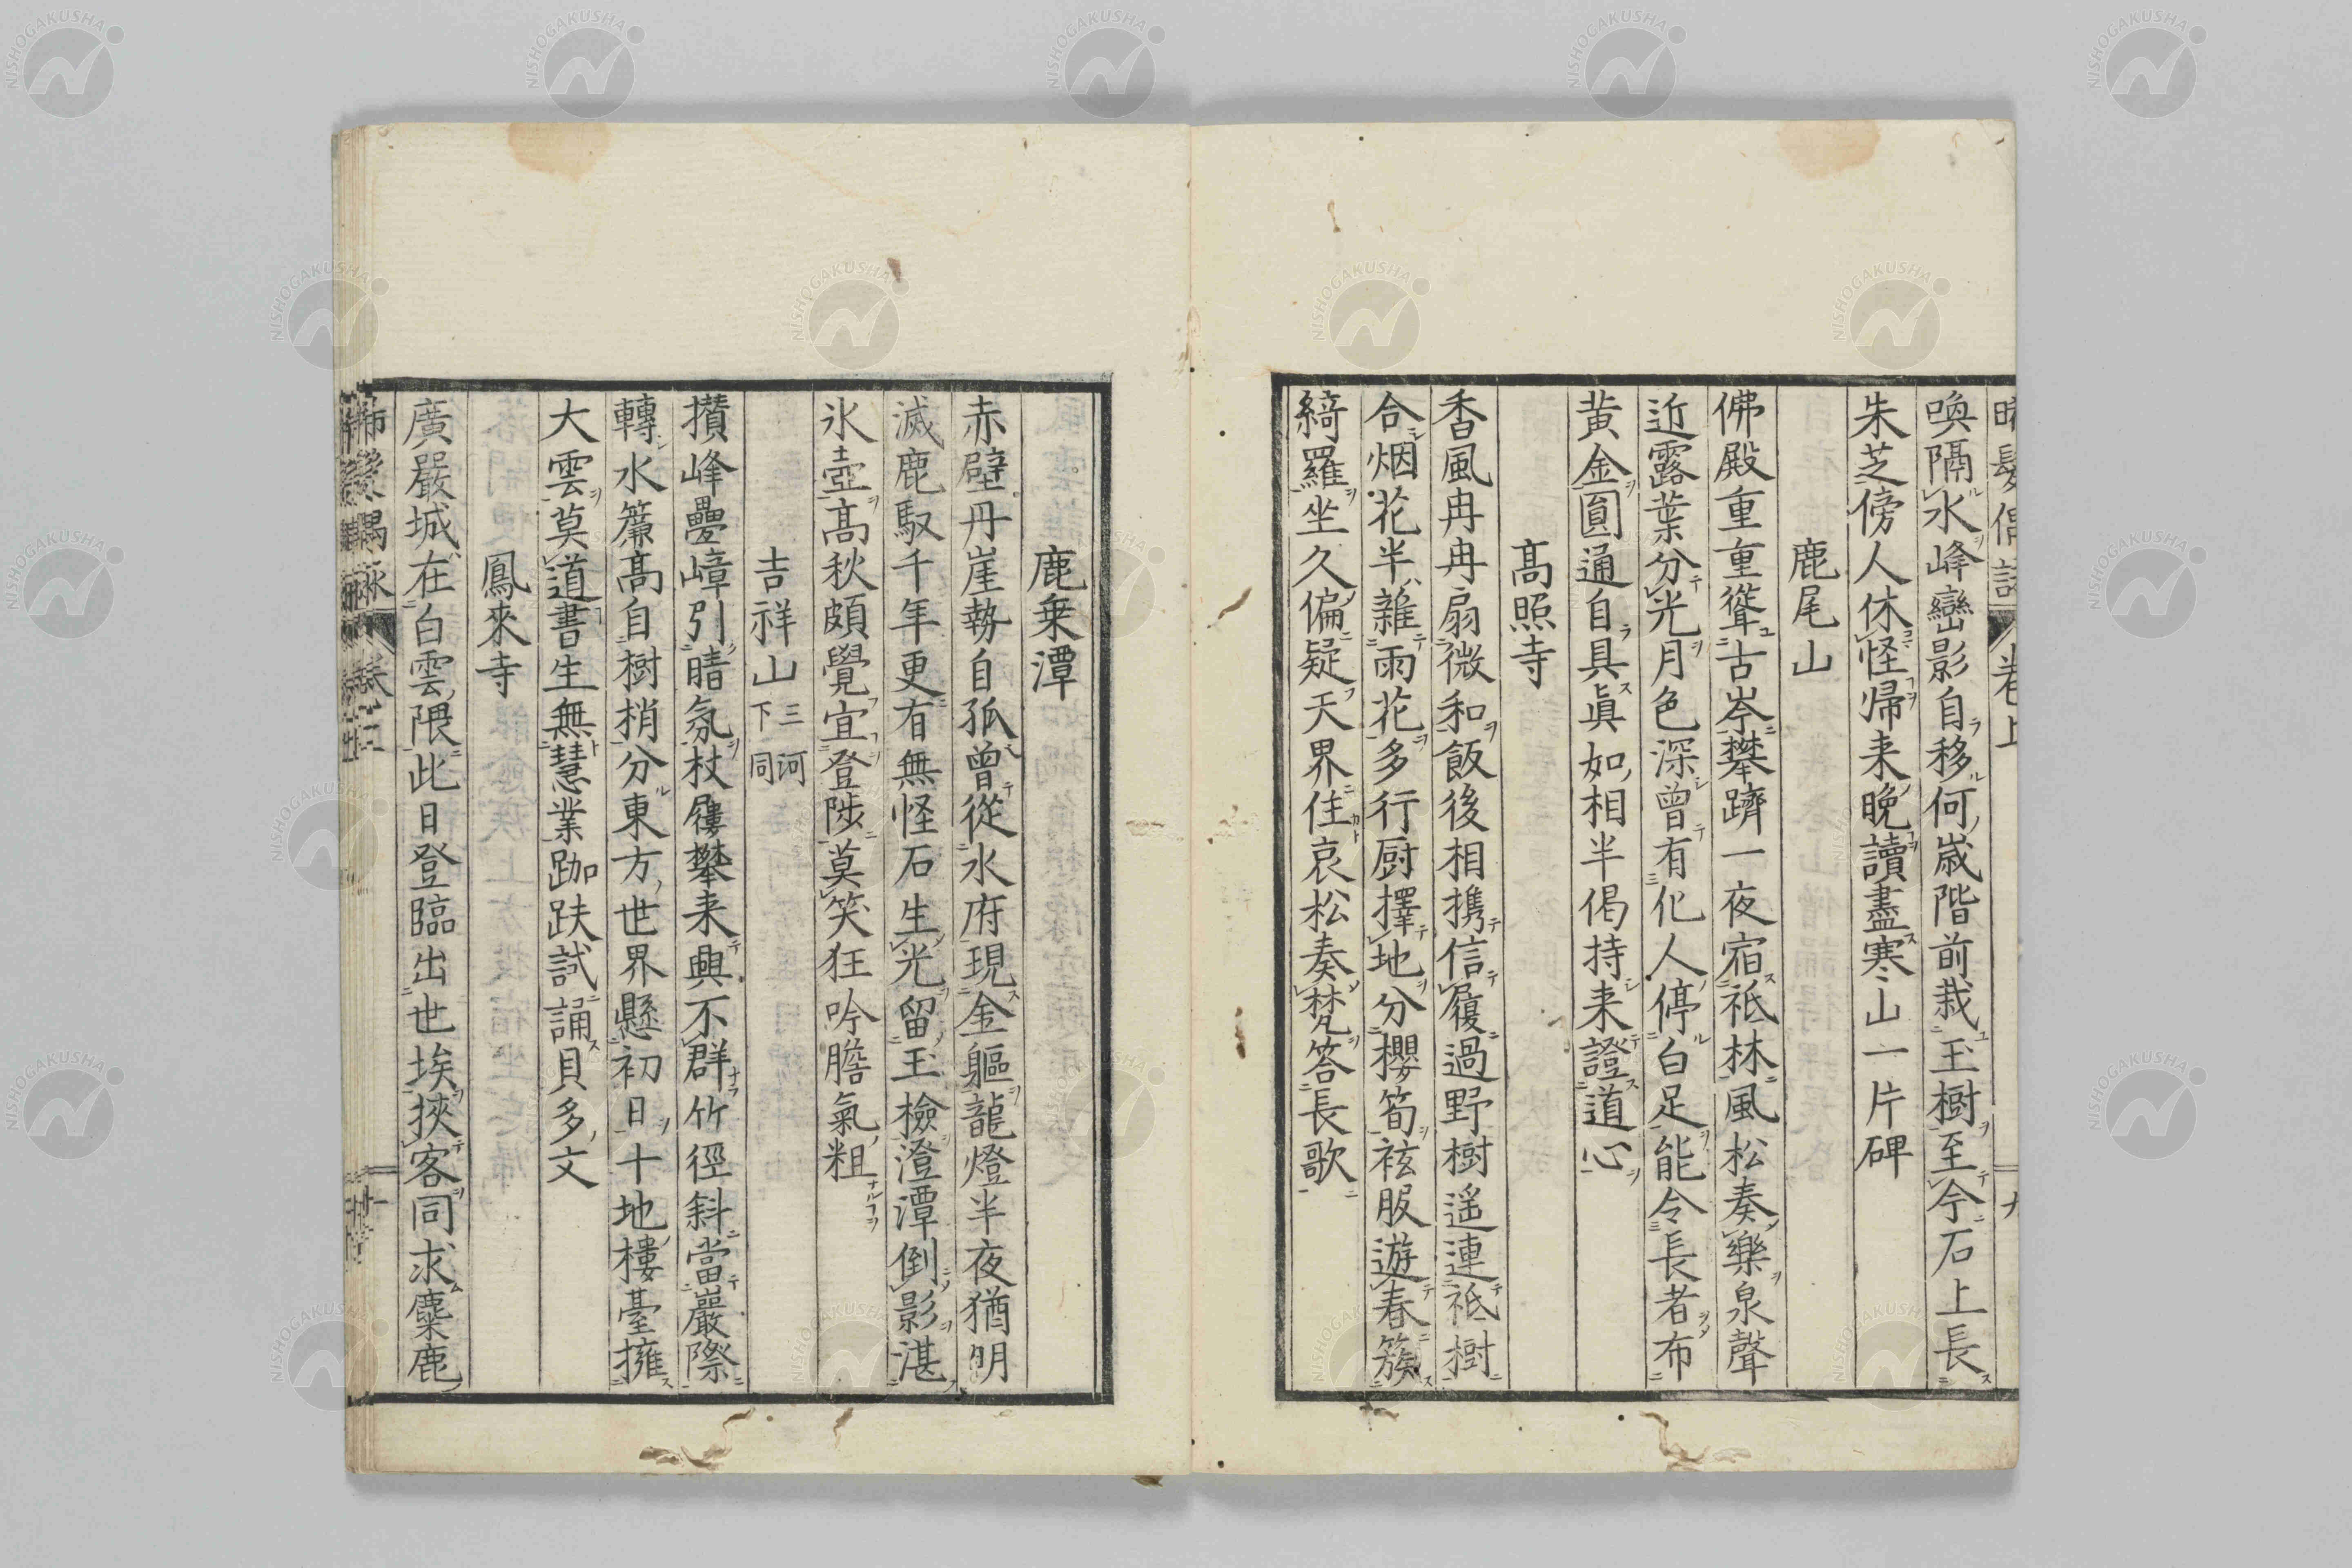 晞髮偶詠 卷上 九
喚隔水峰巒影自移何歳階前栽玉樹至今石上長
朱芝傍人休怪帰来晚讀盡寒山一片碑
鹿尾山
佛殿重重聳古岑攀躋一夜宿祇林風松奏樂泉聲
近露葉分光月色深曾有化人停白足能令長者布
黄金圓通自具眞如相半偈持来證道心
髙照寺
香風冉冉扇微和飯後相携信履過野樹遥連祇樹
合烟花半雜雨花多行厨擇地分櫻筍袨服遊春簇
綺羅坐久偏疑天界住哀松奏梵答長歌
鹿乗潭
赤壁丹崖勢自孤曾從水府現金軀龍燈半夜猶明
滅鹿馭千年更有無怪石生光留玉檢澄潭倒影湛
氷壺髙秋頗覺宜登陟莫笑狂吟膽氣粗
吉祥山 三河下同
攅峰疊嶂引晴氛杖屨攀来興不群竹徑斜當巖際
轉水簾髙自樹梢分東方世界懸初日十地樓臺擁
大雲莫道書生無慧業跏趺試誦貝多文
鳳來寺
廣嚴城在白雲隈此日登臨出世埃挾客同求麋鹿
NISHOGAKUSHA